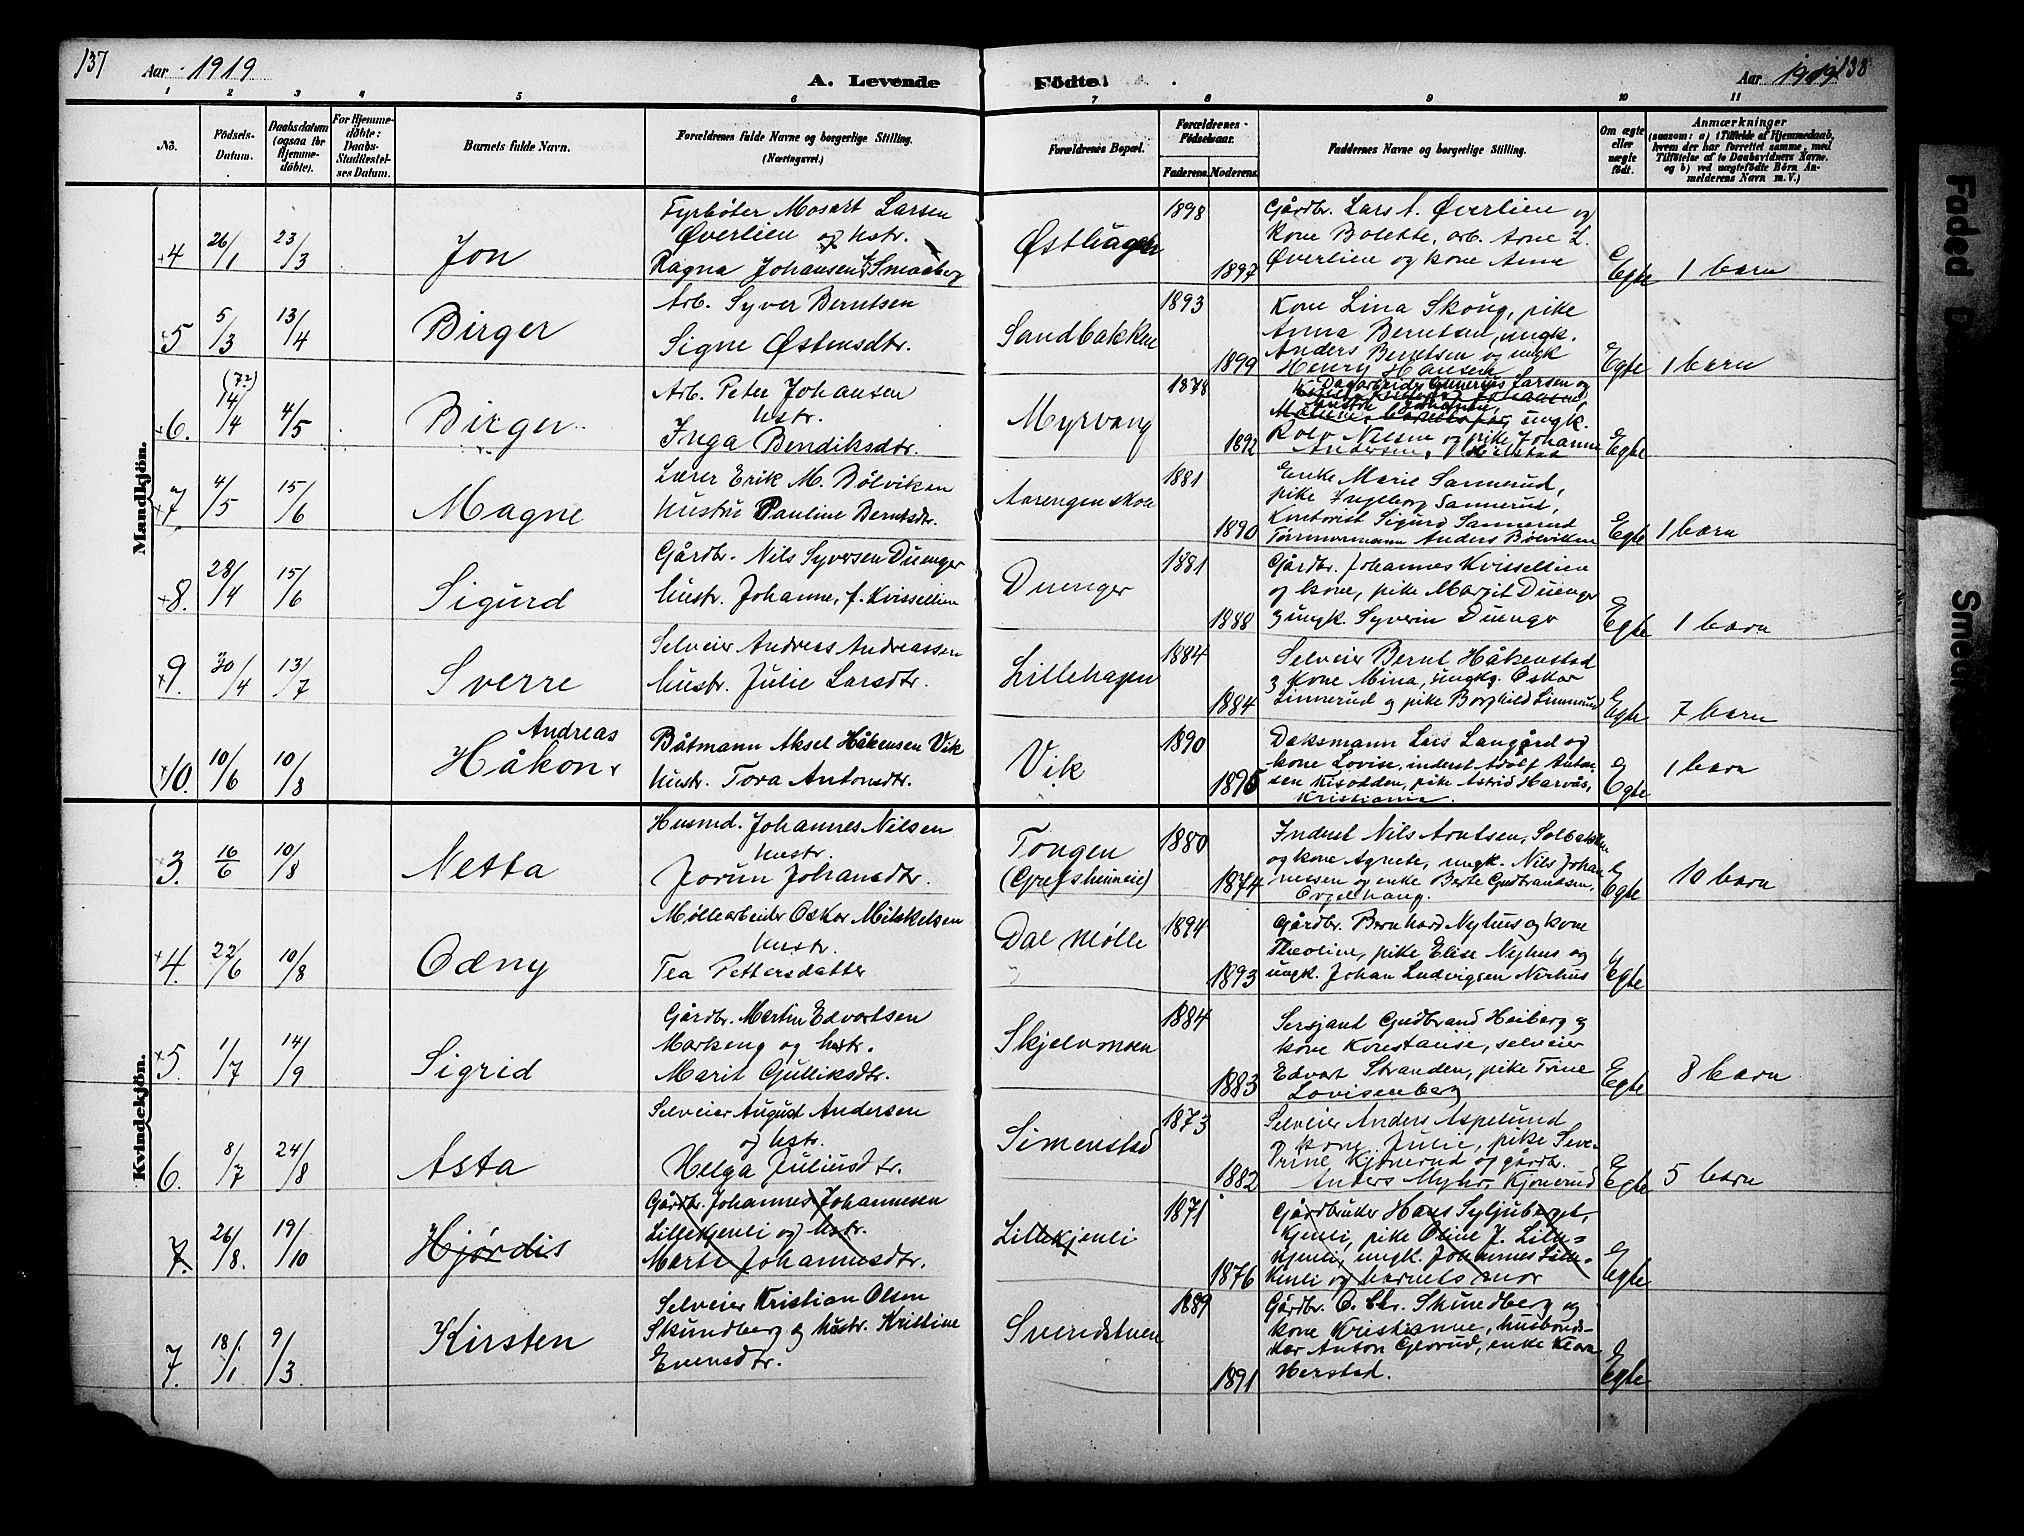 137 Aar 1919 A. Levende Födte. Aar 1919 138
1 2 3 4 5 6 7 8 9 10 11
No. Födsels-Datum. Daabsdatum (ogsaa for Hjemmedöbte). For Hjemmedöbte: Daabs-Stadfæstelses Datum. Barnets fulde Navn. Forældrenes fulde Navne og borgerlige Stilling. (Næringsvei.) Forældrenes Bopæl. Forældrenes Födselsaar. Faderens. Moderens. Faddernes Navne og borgerlige Stilling. Om ægte eller uægte födt. Anmærkninger (saasom: a) i Tilfælde af Hjemmedaab, hvem der har forrettet samme, med Tilföielse af to Daabsvidners Navne. og b) ved uægtefödte Börn Anmelderens Navn m. V.)
Mandkjön.
4 26/1 23/3 Jon
Fyrbøter Mosart Larsen
Øverlien og hstr.
Ragna Johansen f. Smaaberg
Østhagen 1898 1897
Gårdbr. Lars A. Øverlien og
kone Bolette, arb. Arne L.
Øverlien og kone Anne
Egte 1 barn
5 5/3 13/4 Birger
Arb. Syver Berntsen
Signe Østensdtr.
Sandbakken 1893 1899
Kone Lina Skoug, pike
Anna Berntsen, ungk.
Anders Berntsen og ungk
Henry Hansen
Egte 1 barn
6. 14/4 4/5 Birger
Arb. Peter Johansen
hustr.
Inga Bendiksdtr.
Myrvang 1878 1892
Larsen og
ungk.
Rolv Nilsen og pike Johanne
Andersen,
Egte
7. 4/5 15/6 Magne
Lærer Erik M. Bølviken
hustru Pauline Berntsdtr.
Aarengen skole 1881 1890
Enke Marie Sannerud,
pike Ingeborg Sannerud,
Kontorist Sigurd Sannerud
Tømmermann Anders Bølviken
Egte 1 barn
8. 28/4 15/6 Sigurd
Gårdbr. Nils Syversen Duenger
hustr. Johanne, f. Kvisselien
Duenger 1881 1888
Gårdbr. Johannes Kvisselien
og kone, pike Margit Duenger
og ungk. Syverin Duenger
Egte 1 barn
9. 30/4 13/7 Sverre
Selveier Andreas Andreassen
hustr. Julie Larsdtr.
Lillehagen 1884 1884
Selveier Bernt Håkenstad
og kone Mina, ungkg. Oskar
Linnerud og pike Borghild Linnerud
Egte 7 barn
10. 10/6 10/8 Håkon Andreas
Båtmann Aksel Håkensen Vik
hustr. Tora Antonsdtr.
Vik 1890 1895
Daksmann Lars Langård og
kone Lovise, inderst Adolf Anton-
sen Kisodden, pike Astrid Harvås,
Kristiania.
Egte 1 barn
Kvindekjön.
3. 16/6 10/8 Netta
Husmd. Johannes Nilsen
hustr.
Jorun Johansdtr.
Tongen
(Grefsheimeie)
1880 1874
Inderst Nils Arntsen, Solbakken
og kone Agnete, ungk. Nils Johan
nessen og enke Berte Gudbrandsen,
Egte 10 barn
4. 22/6 10/8 Odny
Møllearbeider Oskar Mikkelsen
hustr.
Tea Pettersdatter
Dal mølle 1894 1893
Gårdbr. Bernhard Nyhus og kone
Theoline, pike Elise Nyhus og
ungk. Johan Ludvigsen Nerhus
Egte
5. 1/7 14/9 Sigrid
Gårdbr. Martin Edvartsen
Markeng og hstr.
Marit Gulliksdtr.
Skjelvonsen 1884 1883
Sersjant Gudbrand Heiberg og
kone Konstanse, selveier
Edvart Stranden, pike Trine
Lovisenberg
Egte 8 barn
6. 8/7 24/8 Asta
Selveier August Andersen
og hstr.
Helga Juliusdtr.
Simenstad 1873 1882
Selveier Anders Aspelund
og kone Julie, pike Seve-
rine Kjonerud og gårdbr.
Anders Myhr, Kjonerud
Egte 5 barn
7. 26/8. 19/10 Hjørdis
Gårdbr. Johannes Johannesen
Lillekjenli og hstr.
Marte Johannesdtr.
Lillekjenli 1871 1876
Gårdbruker Hans Syljuberget,
Kjenli, pike Oline J. Lille-
kjenli, ungk. Johannes Lille-
kenli og barnets mor
Egte
7. 18/1 9/3 Kirsten
Selveier Kristian Olsen
Skundberg og hustr. Kristine
Evensdtr.
Sveredstuen 1889 1891
Gårdbr. O. Chr. Skundberg og
kone Kristianne, husbonds-
kar Anton Glorud, enke Klara
Herstad.
Egte
Faded
Smed